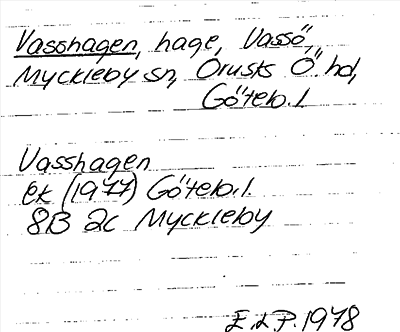 Vasshagen, hage, Vassö,
Myckleby sn, Orusts Ö. hd,
Göteb. l
Vasshagen
ek (1977) Göteb. l.
8B 2c Myckleby
E.L.P. 1978